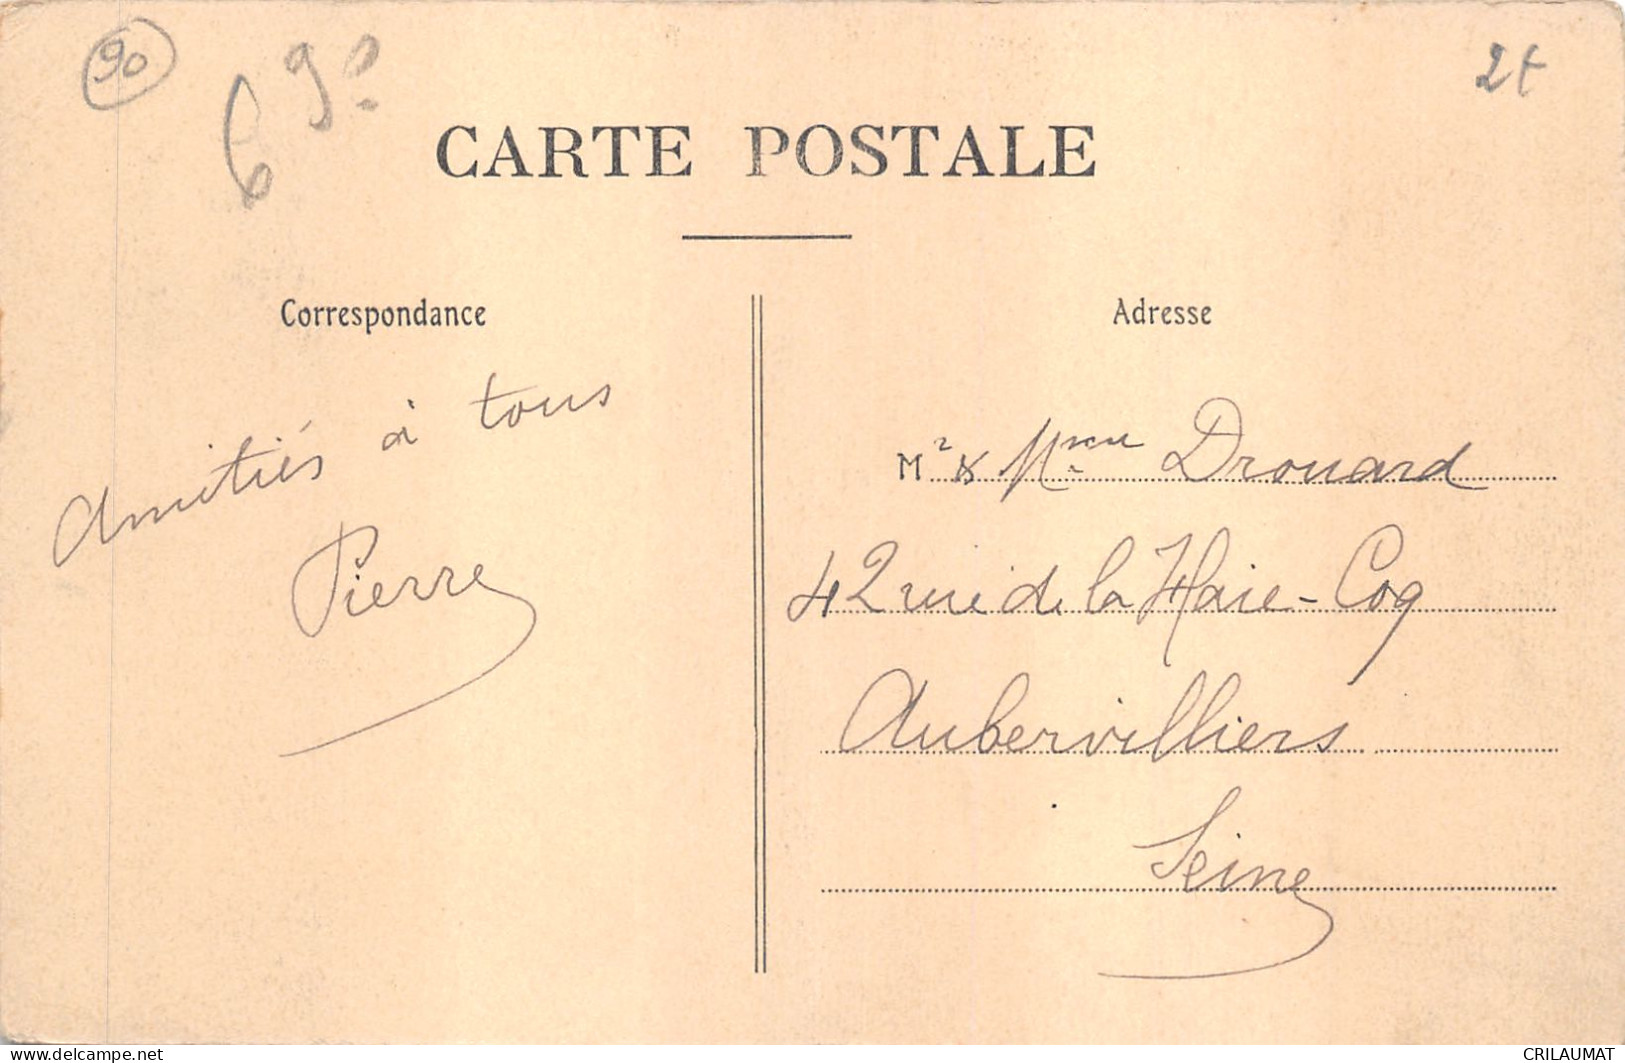 90
69°
2t
CARTE POSTALE
Correspondance
Adresse
Amitiés à tous
Pierre
Mr & Mme Drouard
42 rue de la Haie-Coq
Aubervilliers
Seine
www.delcampe.net
CRILAUMAT